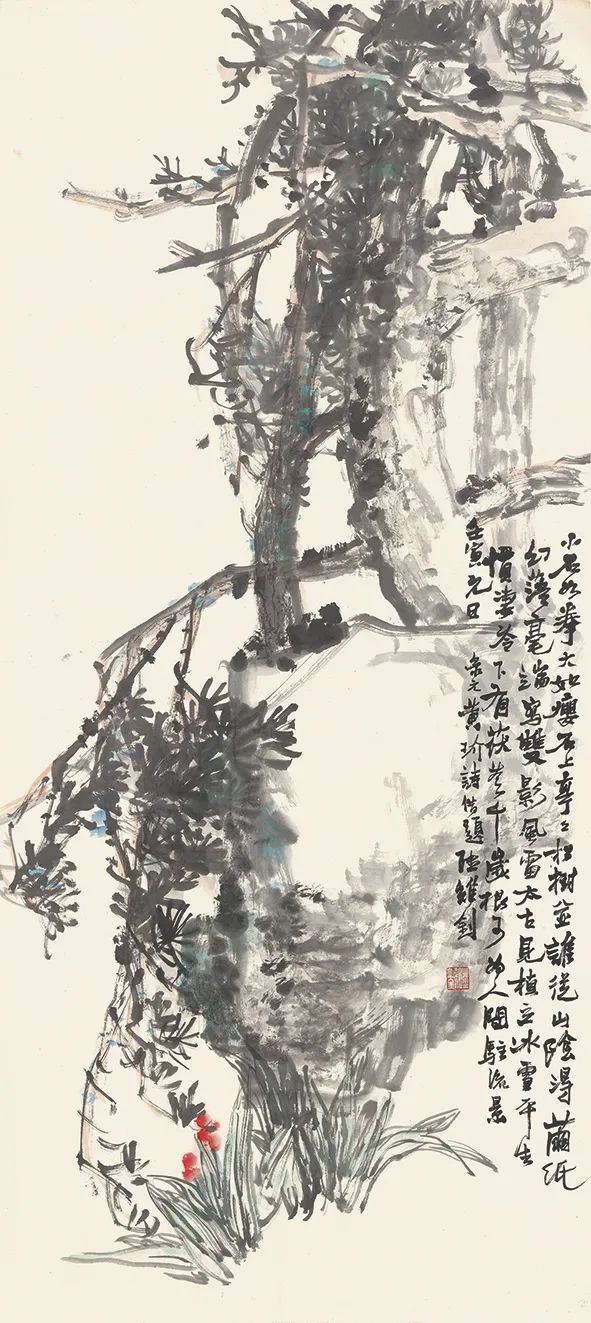 小石如拳大如癭石上亭〻松樹並誰從山陰得繭紙
幻落毫端寫雙影風雷太古見植立冰雪平生
慣淒冷下有茯苓千歲根可為人間駐流景
壬寅元日
采元黃玠詩借題陸維釗